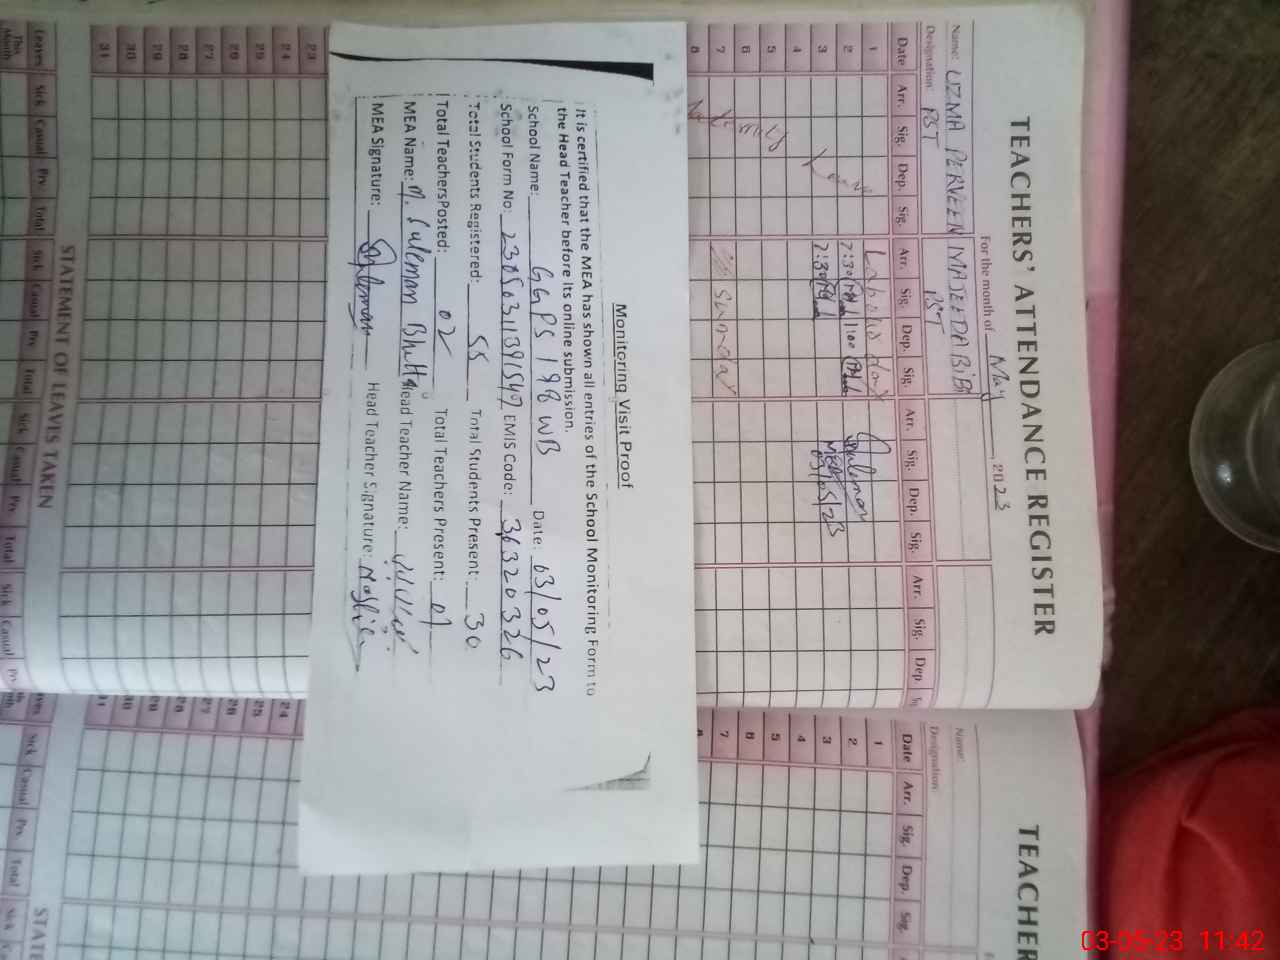 TEACHERS' ATTENDANCE REGISTER
For the month of May, 2023
Name: UZMA PERVEEN MAJEEDA BiBi
Designation: PST PST
Date Arr. Sig. Dep. Sig. Arr. Sig. Dep. Sig. Arr. Sig. Dep. Sig. Arr. Sig. Dep
1 Labour day
2 7:30 1:00
3 7:30 MEA 03/05/23
4
5
6
7 Sunday
8
Monitoring Visit Proof
It is certified that the MEA has shown all entries of the School Monitoring Form to
the Head Teacher before its online submission.
School Name: GGPS 198 WB Date: 03/05/23
School Form No: EMIS Code: 36320326
Total Students Registered: 55 Total Students Present: 30
Total Teachers Posted: 02 Total Teachers Present: 01
MEA Name: M. Suleman Bhutta Head Teacher Name:
MEA Signature: Suleman Head Teacher Signature:
23
24
25
26
27
28
29
30
31
STATEMENT OF LEAVES TAKEN
Leaves Sick Casual Prv. Total Sick Casual Prv. Total Sick Casual Prv. Total Sick Casual Prv.
This Month
TEACHER
Name:
Designation:
Date Arr. Sig. Dep. Sig.
1
2
3
4
5
6
7
8
24
25
26
27
28
29
30
31
STATE
Sick Casual Prv. Total Sick
03-05-23 11:42